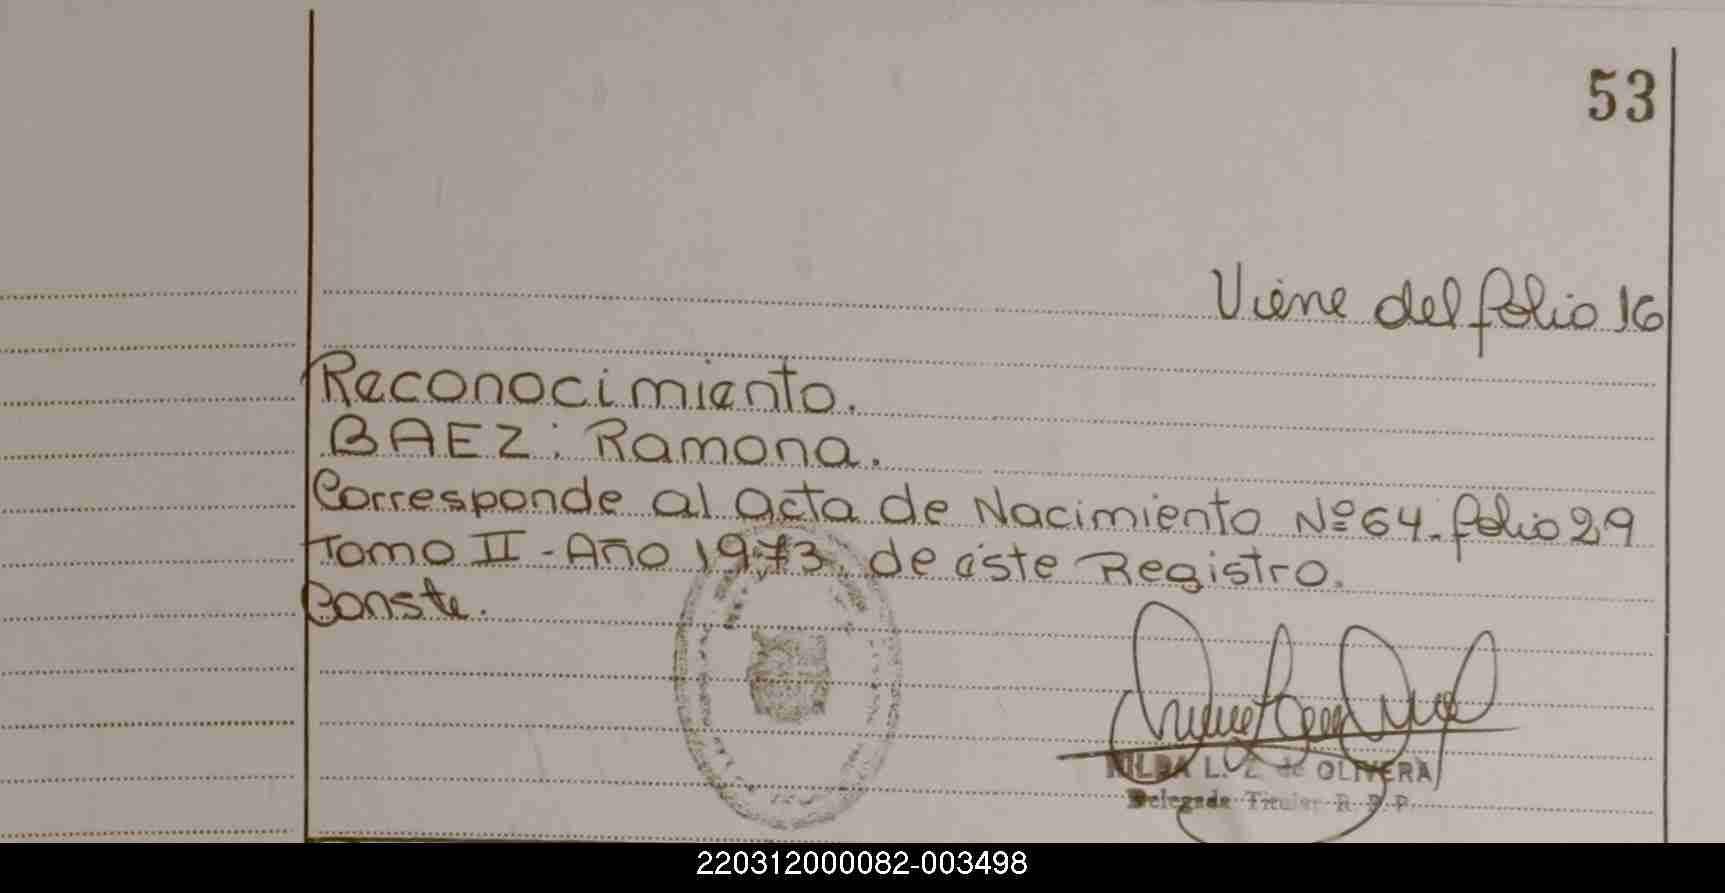 53
Viene del folio 16
Reconocimiento.
BAEZ: Ramona.
Corresponde al acta de Nacimiento Nº 64. folio 29
Tomo II - Año 1973. de éste Registro.
Conste.
L. Z. de OLIVERA
Delegada Titular R. P.
220312000082-003498